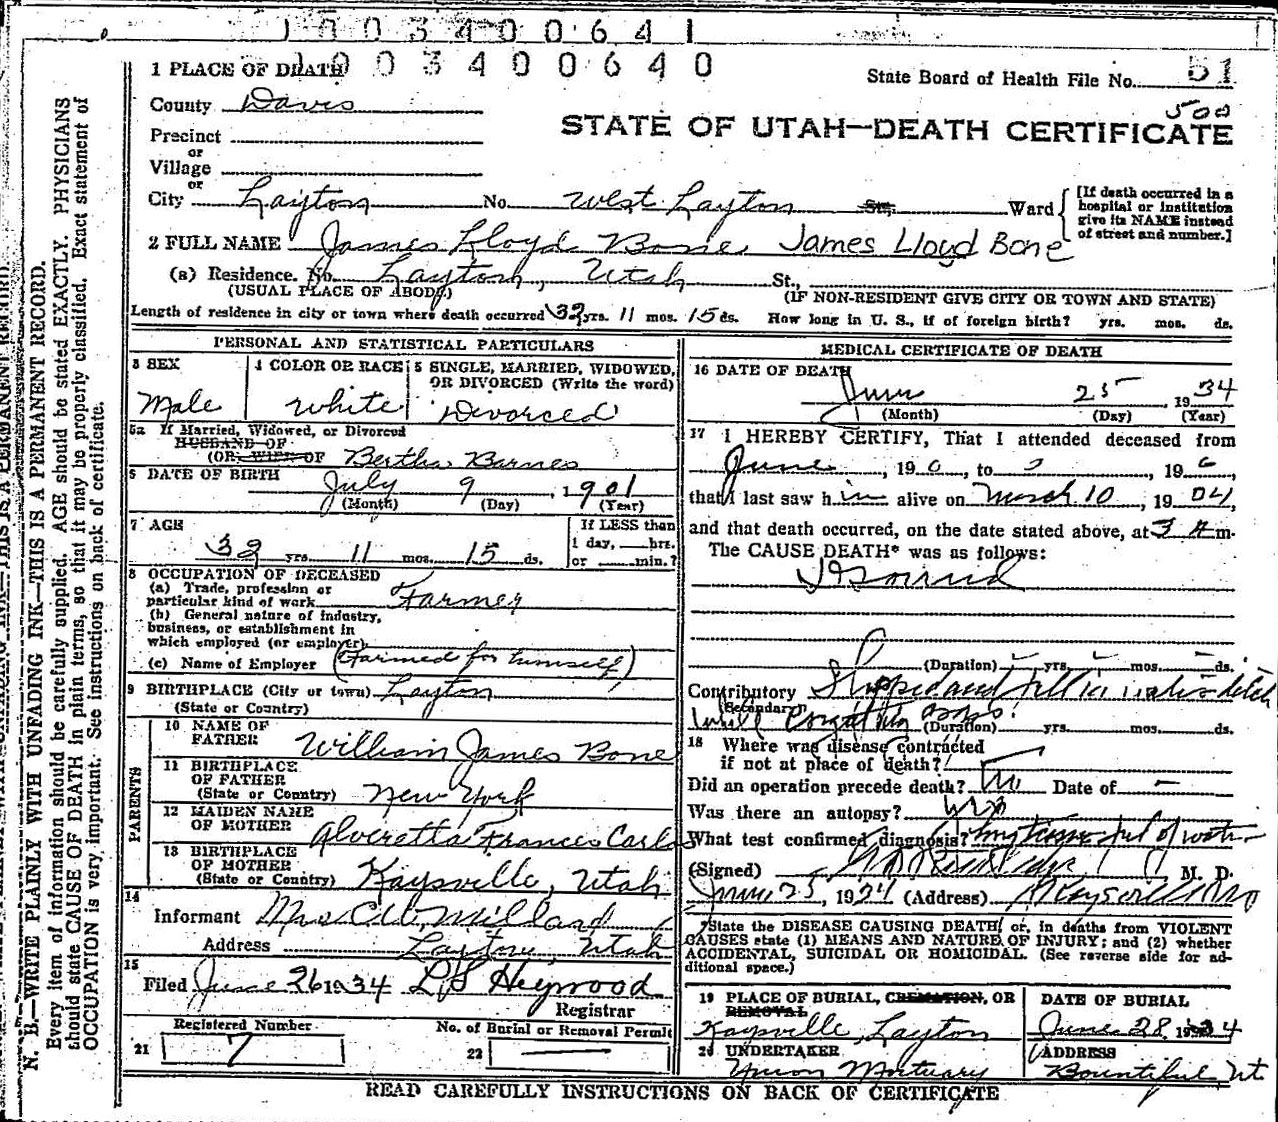 1003400641
1003400640
1 PLACE OF DEATH
State Board of Health File No. 51
County Davis
500
STATE OF UTAH—DEATH CERTIFICATE
Precinct
or
Village
or
City Layton No. West Layton St., Ward
[If death occurred in a hospital or institution give its NAME instead of street and number.]
2 FULL NAME James Lloyd Bone James Lloyd Bone
(a) Residence. No. Layton, Utah St.,
(USUAL PLACE OF ABODE) (IF NON-RESIDENT GIVE CITY OR TOWN AND STATE)
Length of residence in city or town where death occurred 32 yrs. 11 mos. 15 ds. How long in U. S., if of foreign birth? yrs. mos. ds.
PERSONAL AND STATISTICAL PARTICULARS
3 SEX
Male
4 COLOR OR RACE
White
5 SINGLE, MARRIED, WIDOWED, OR DIVORCED (Write the word)
Divorced
5a If Married, Widowed, or Divorced
HUSBAND OF
(OR WIFE OF Bertha Barnes
6 DATE OF BIRTH
July 9, 1901
(Month) (Day) (Year)
7 AGE
32 yrs. 11 mos. 15 ds.
If LESS than
1 day, hrs.
or min.?
8 OCCUPATION OF DECEASED
(a) Trade, profession or
particular kind of work Farmer
(b) General nature of industry,
business, or establishment in
which employed (or employer)
(c) Name of Employer (Farmed for himself)
9 BIRTHPLACE (City or town) Layton
(State or Country)
PARENTS
10 NAME OF
FATHER William James Bone
11 BIRTHPLACE
OF FATHER
(State or Country) New York
12 MAIDEN NAME
OF MOTHER Alveretta Frances Carlos
13 BIRTHPLACE
OF MOTHER
(State or Country) Kaysville, Utah
14
Informant Mrs. Millard
Address Layton, Utah
15
Filed June 26 1934 L S Heywood
Registrar
Registered Number
21 7
No. of Burial or Removal Permit
22 —
MEDICAL CERTIFICATE OF DEATH
16 DATE OF DEATH
June 25, 1934
(Month) (Day) (Year)
17 I HEREBY CERTIFY, That I attended deceased from
June, 190, to 0, 190
that I last saw him alive on March 10, 1904,
and that death occurred, on the date stated above, at 3 A m.
The CAUSE DEATH* was as follows:
(Duration) yrs. mos. ds.
Contributory Slipped and fell in water ditch
(Secondary)
while
(Duration) yrs. mos. ds.
18 Where was disease contracted
if not at place of death?
Did an operation precede death? No Date of —
Was there an autopsy? No
What test confirmed diagnosis? full of water
(Signed) M. D.
June 25, 1934 (Address) Kaysville
*State the DISEASE CAUSING DEATH, or, in deaths from VIOLENT
CAUSES state (1) MEANS AND NATURE OF INJURY; and (2) whether
ACCIDENTAL, SUICIDAL OR HOMICIDAL. (See reverse side for ad-
ditional space.)
19 PLACE OF BURIAL, CREMATION, OR
REMOVAL
Kaysville, Layton
DATE OF BURIAL
June 28, 1934
20 UNDERTAKER
Union Mortuary
ADDRESS
Bountiful Ut
READ CAREFULLY INSTRUCTIONS ON BACK OF CERTIFICATE
N. B.—WRITE PLAINLY WITH UNFADING INK—THIS IS A PERMANENT RECORD.
Every item of information should be carefully supplied. AGE should be stated EXACTLY. PHYSICIANS
should state CAUSE OF DEATH in plain terms, so that it may be properly classified. Exact statement of
OCCUPATION is very important. See instructions on back of certificate.